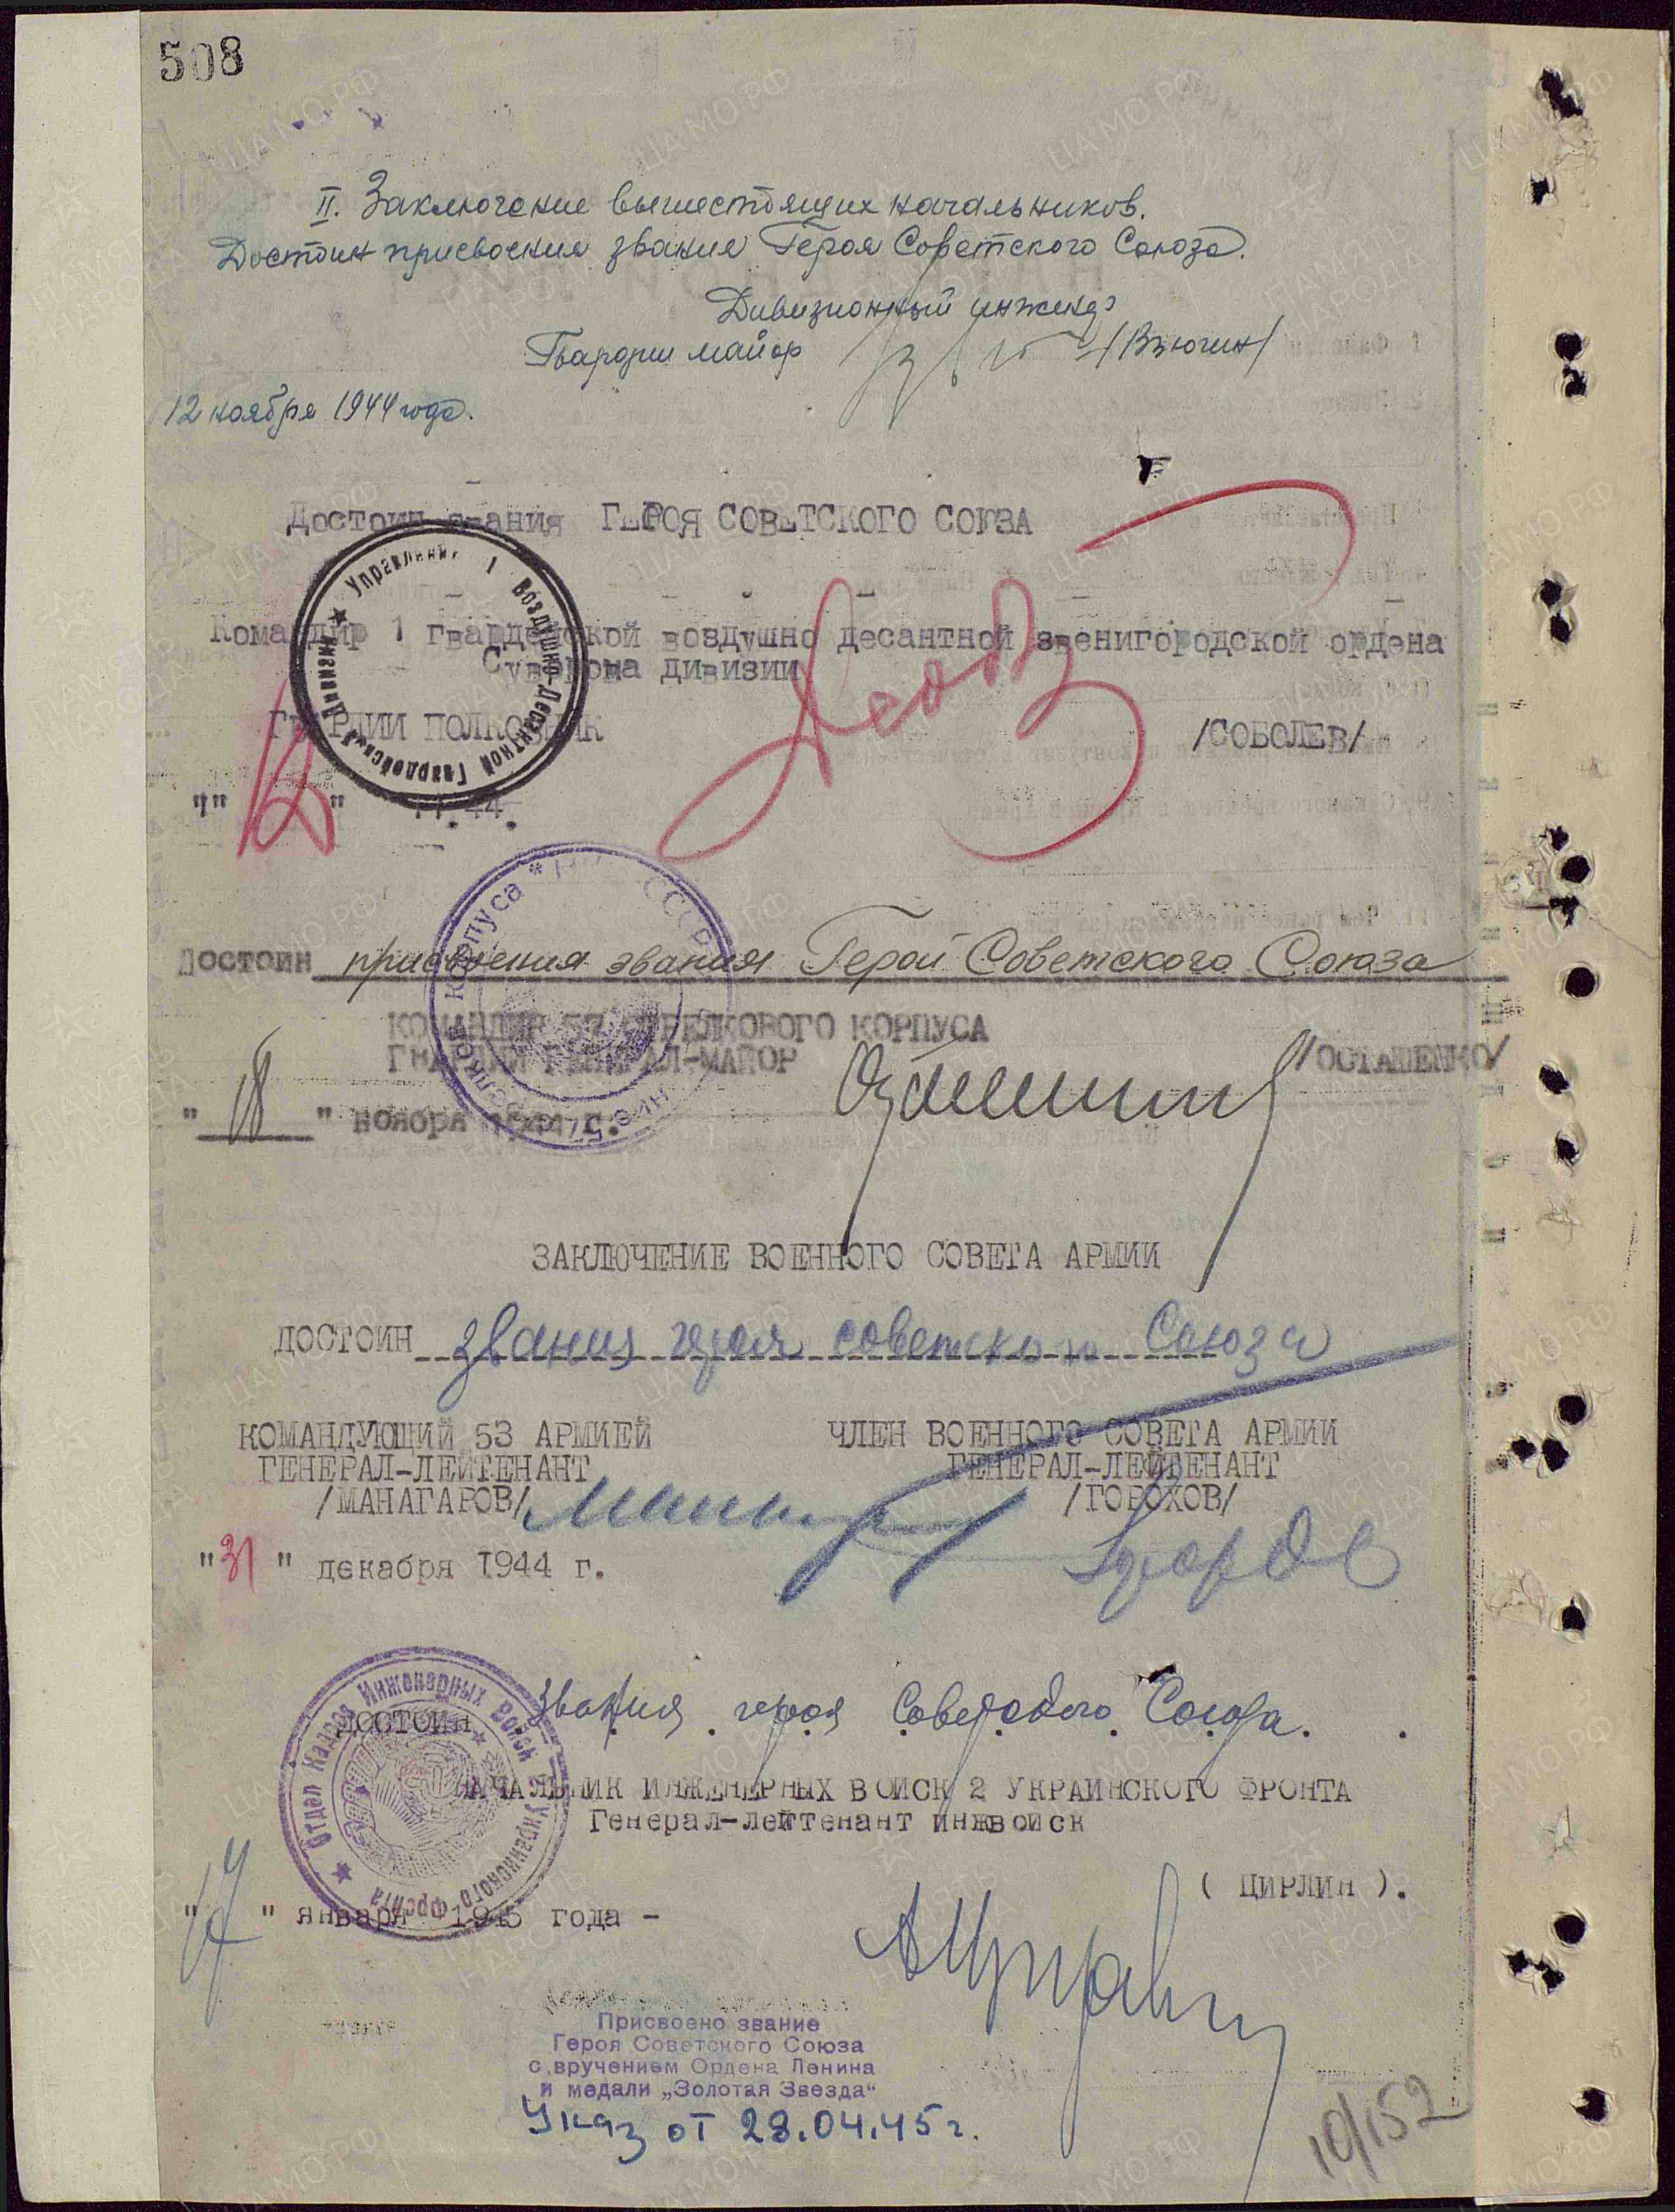 508
II. Заключение вышестоящих начальников.
Достоин присвоения звания Героя Советского Союза.
Дивизионный инженер
Гвардии майор /Вьюгин/
12 ноября 1944 года.
Достоин звания ГЕРОЯ СОВЕТСКОГО СОЮЗА
Командир 1 гвардейской воздушно десантной звенигородской ордена
Суворова дивизии
ГВАРДИИ ПОЛКОВНИК /СОБОЛЕВ/
" " 11.44.
Управление 1 Воздушно-Десантной Гвардейской Дивизии
Достоин присвоения звания Герой Советского Союза
КОМАНДИР 57 СТРЕЛКОВОГО КОРПУСА
ГВАРДИИ ГЕНЕРАЛ-МАЙОР /ОСТАШЕНКО/
"18" ноября 1944 г.
ЗАКЛЮЧЕНИЕ ВОЕННОГО СОВЕТА АРМИИ
ДОСТОИН звания героя советского Союза
КОМАНДУЮЩИЙ 53 АРМИЕЙ ЧЛЕН ВОЕННОГО СОВЕТА АРМИИ
ГЕНЕРАЛ-ЛЕЙТЕНАНТ ГЕНЕРАЛ-ЛЕЙТЕНАНТ
/МАНАГАРОВ/ /ГОРОХОВ/
"31" декабря 1944 г.
ДОСТОИН звания героя Советского Союза.
НАЧАЛЬНИК ИНЖЕНЕРНЫХ ВОЙСК 2 УКРАИНСКОГО ФРОНТА
Генерал-лейтенант инжвойск
( ЦИРЛИН ).
"17" января 1945 года -
Отдел Кадров Инженерных Войск Украинского Фронта
Присвоено звание
Героя Советского Союза
с вручением Ордена Ленина
и медали „Золотая Звезда“
Указ от 28.04.45г.
10/152